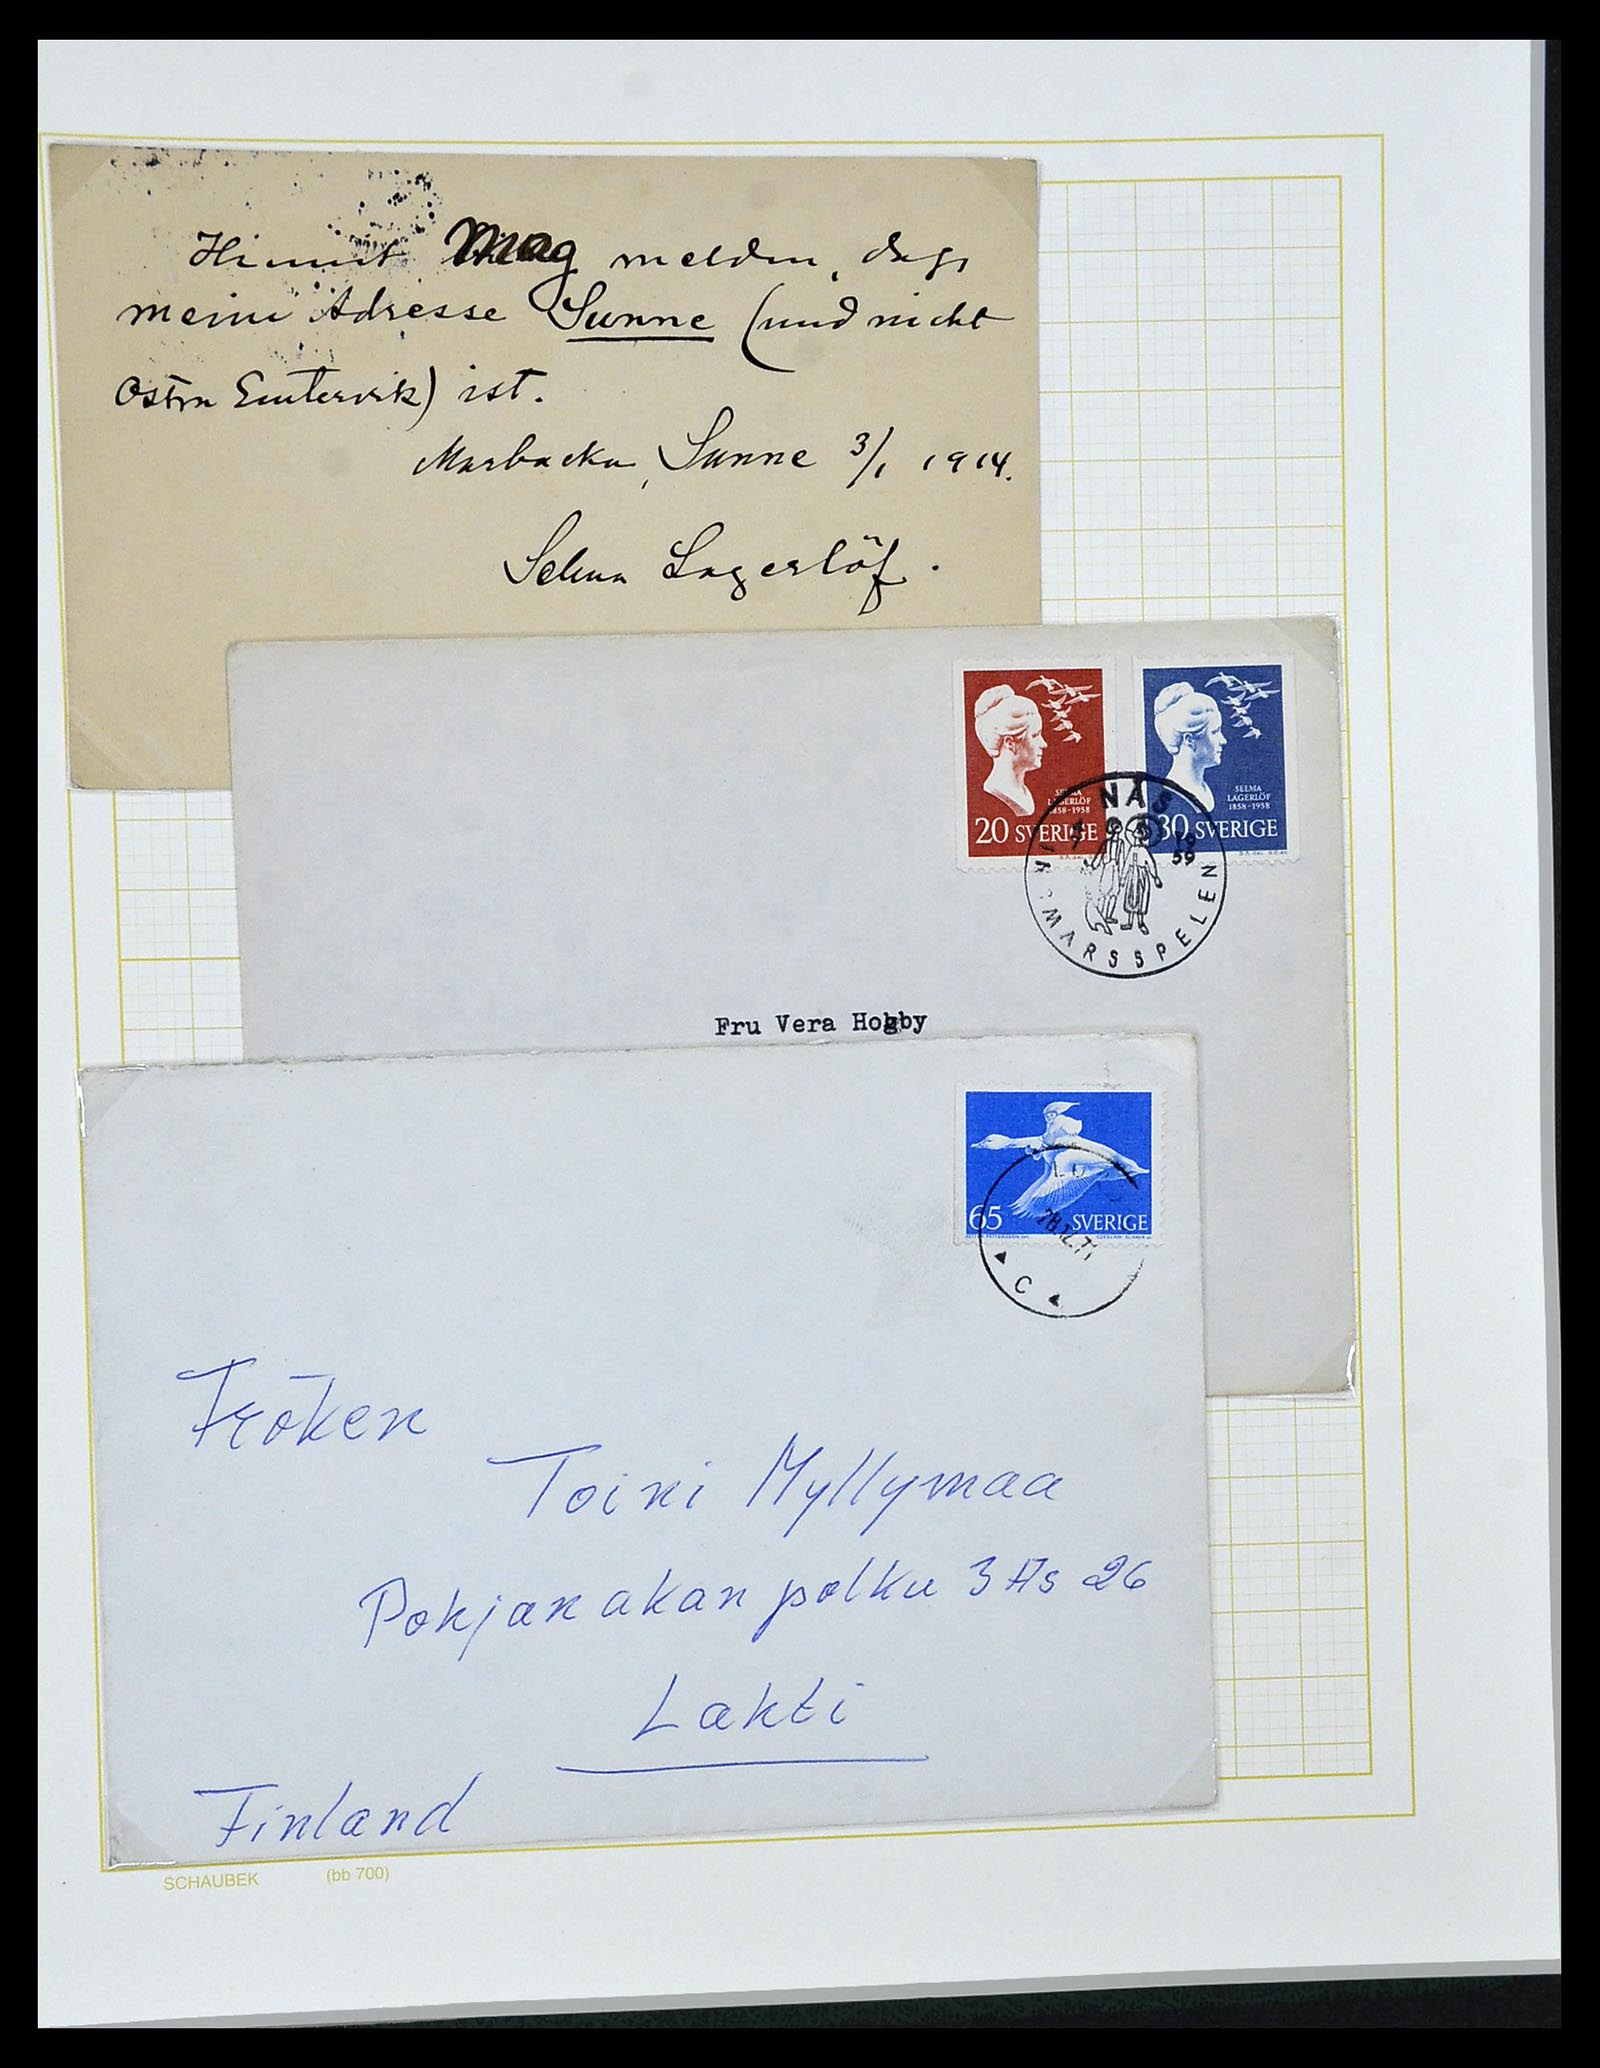 Hiermit mag melden, dass
meine Adresse Sunne (und nicht
Östra Emtervik) ist.
Marbacka, Sunne 3/1 1914.
Selma Lagerlöf.
SELMA
LAGERLÖF
1858-1958
20 SVERIGE
SELMA
LAGERLÖF
1858-1958
30 SVERIGE
NÅS
59
INGMARSSPELEN
Fru Vera Hogby
65 SVERIGE
28.12.71
C
Fröken
Toini Myllymaa
Pohjanakan polku 3 As 26
Lahti
Finland
SCHAUBEK (bb 700)